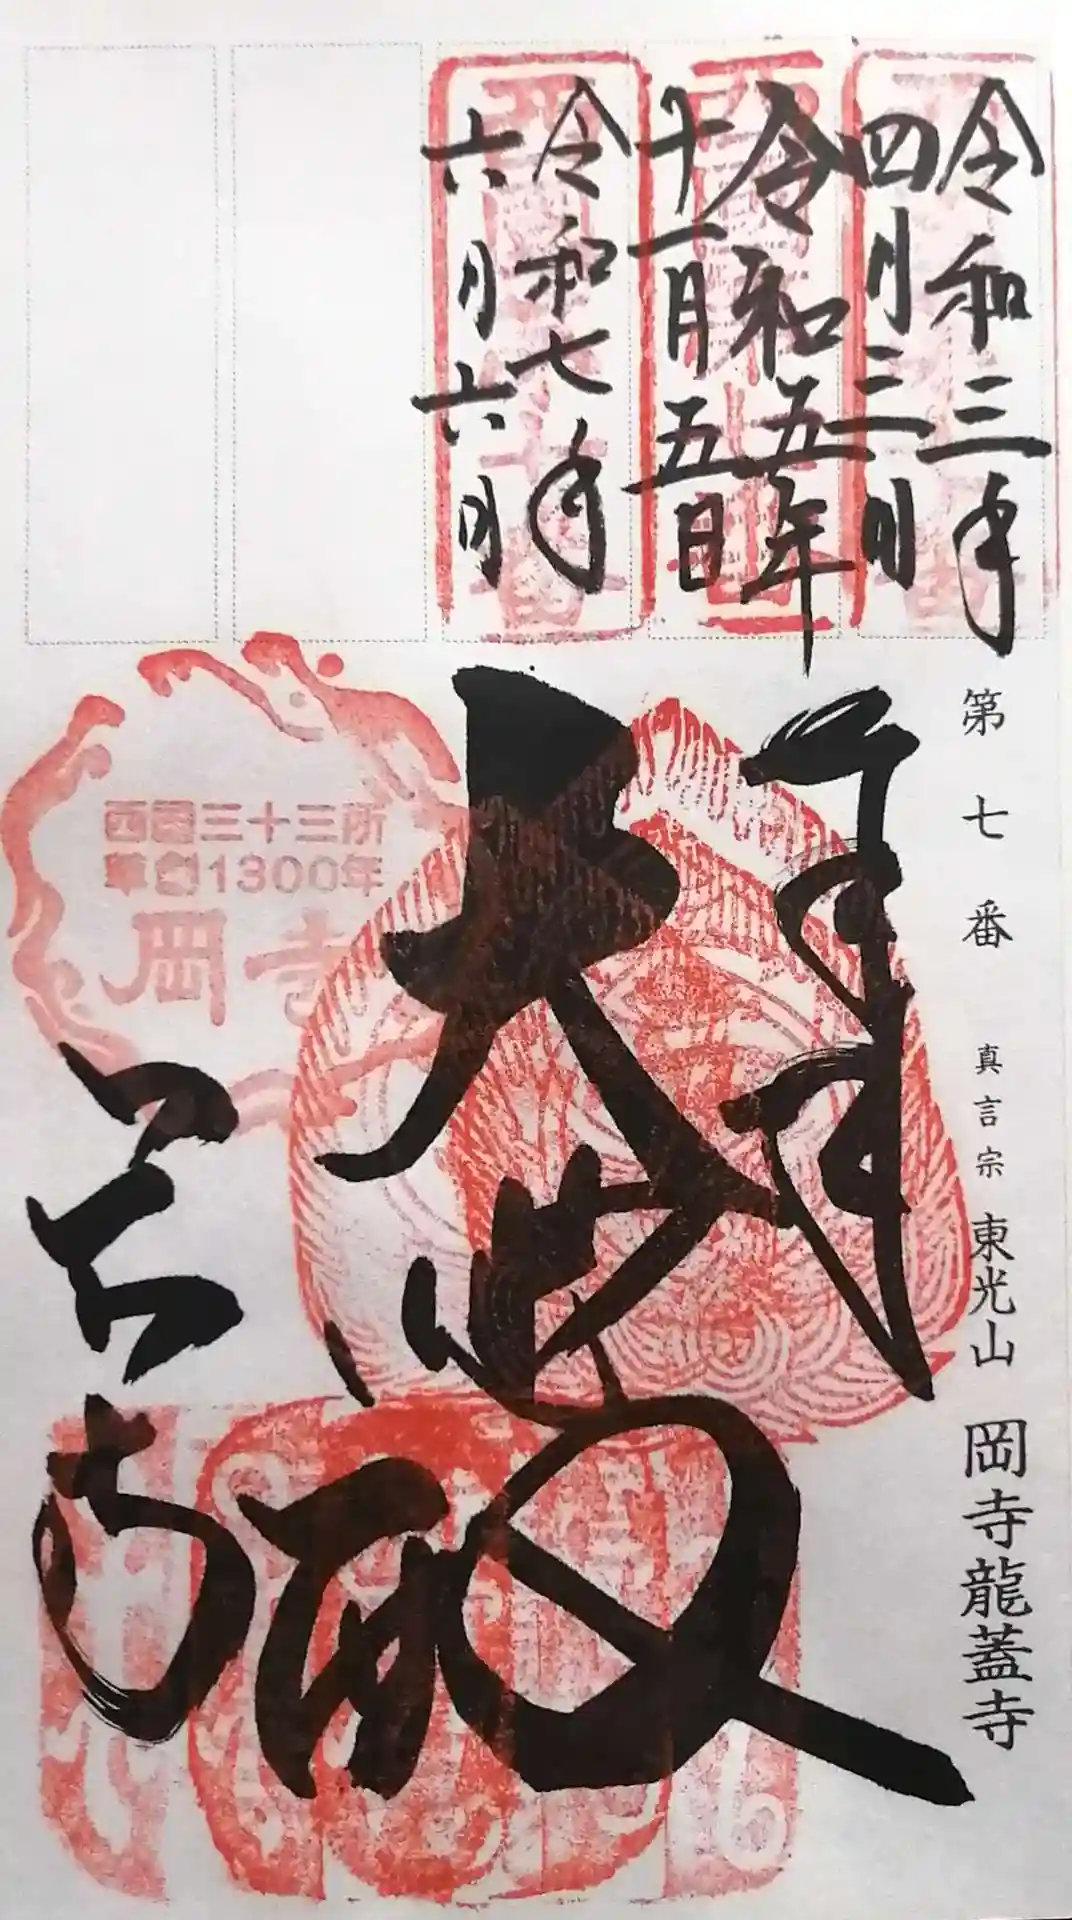 令和三年
四月三日
令和五年
十一月五日
令和七年
六月六日
第七番 真言宗 東光山 岡寺龍蓋寺
拝
大悲殿
岡寺
西国三十三所
草創1300年
岡寺